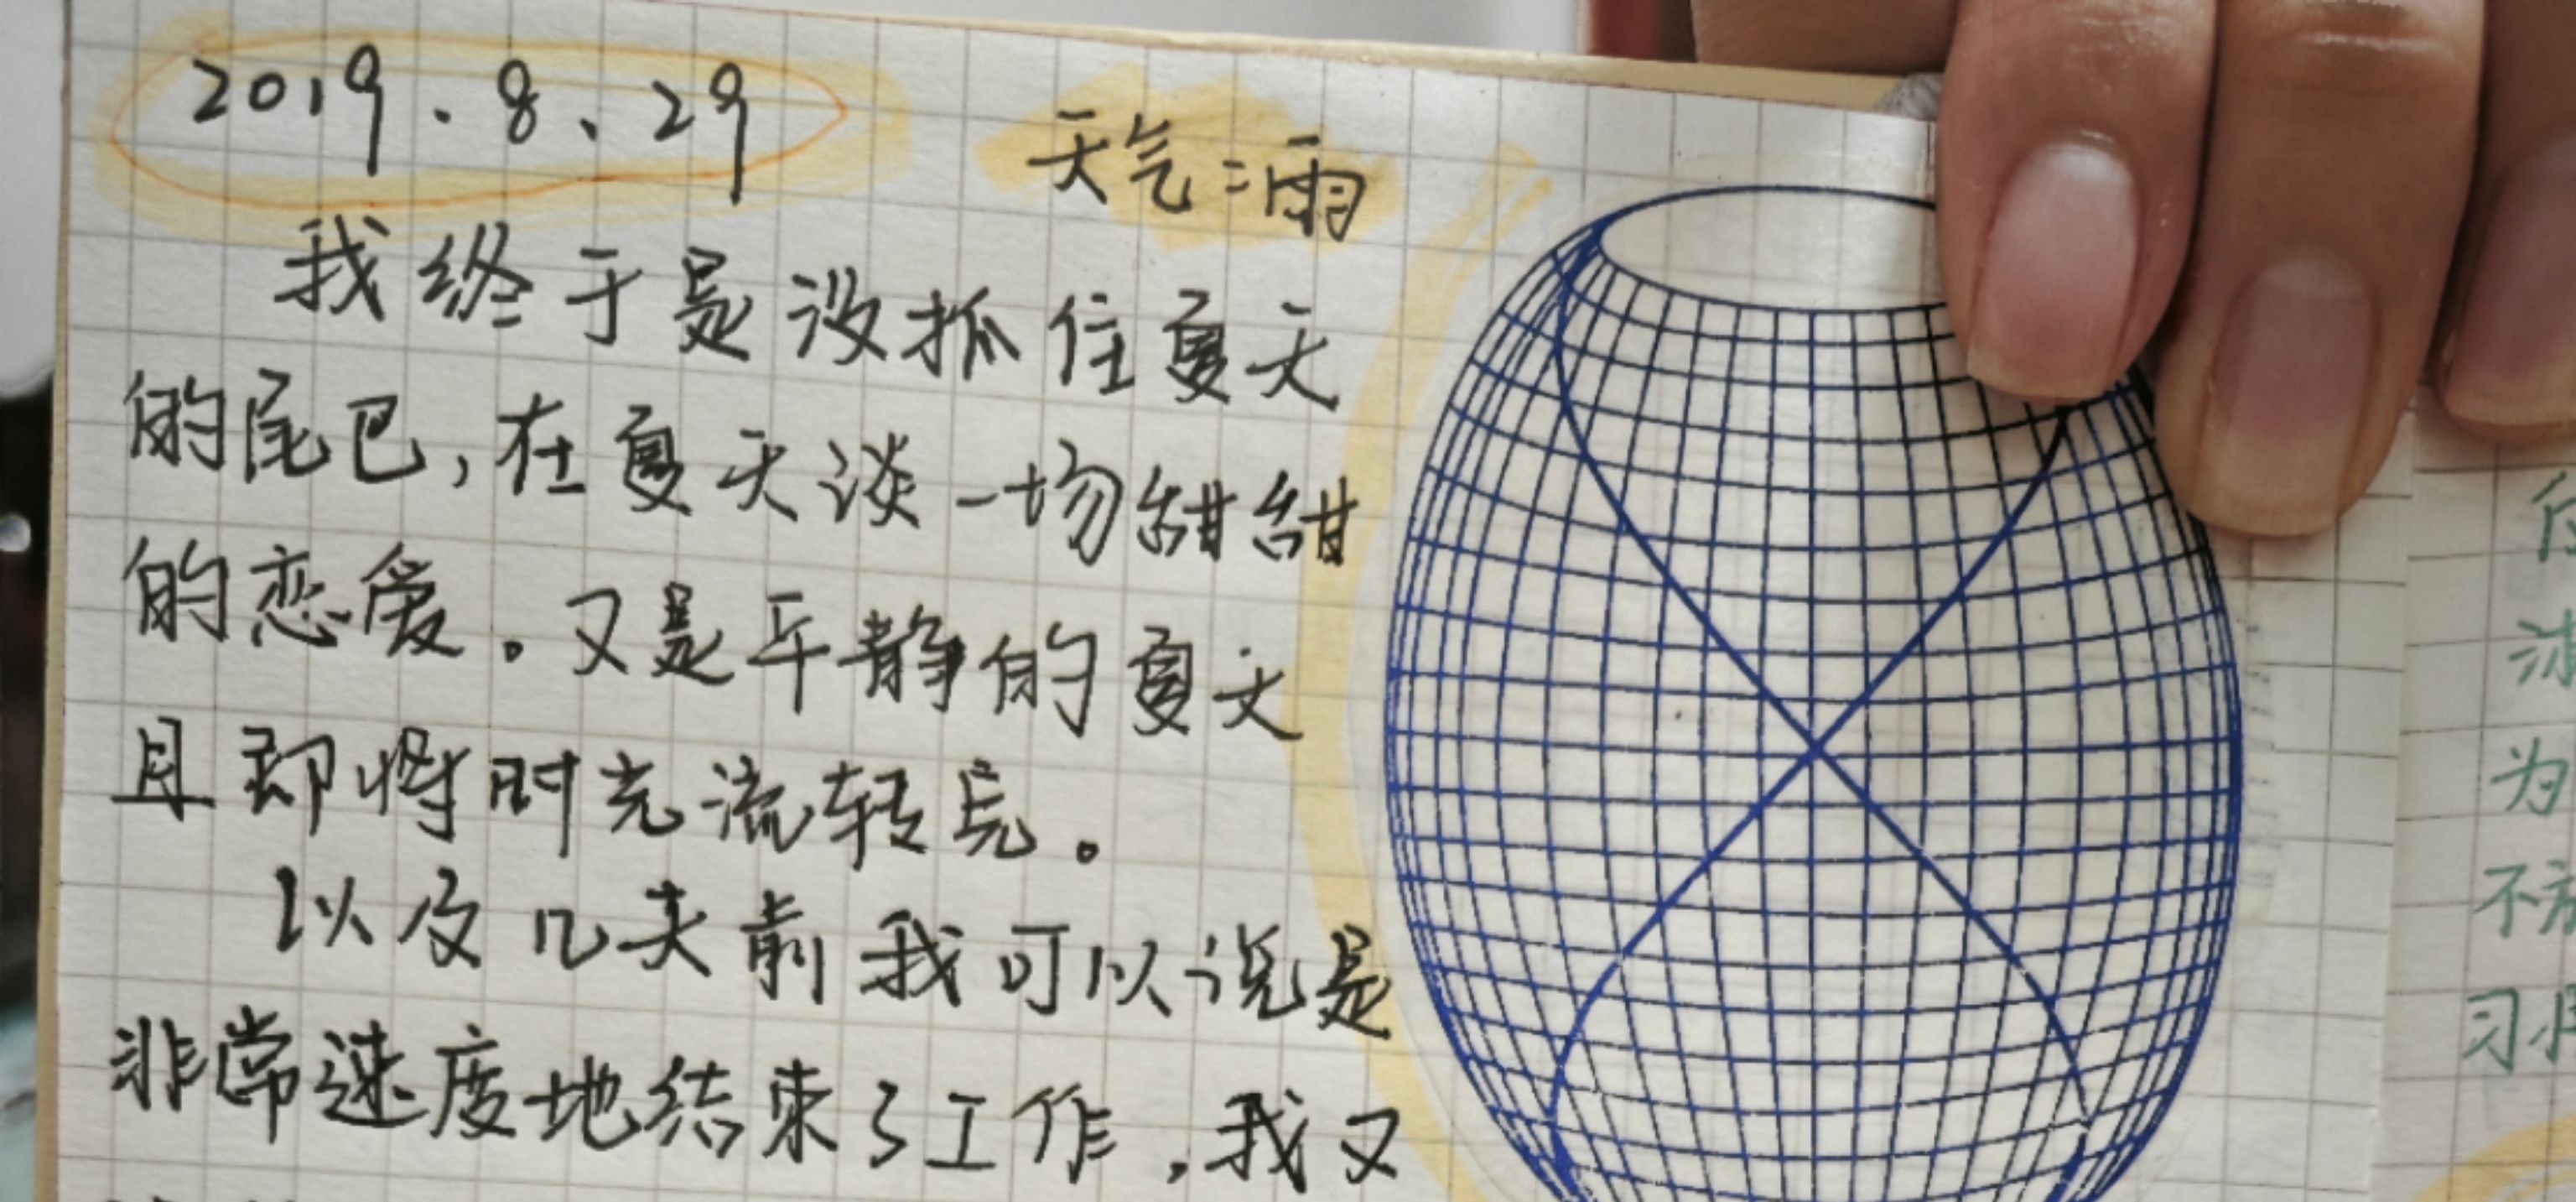 2019.8.29 天气:雨
我终于是没抓住夏天
的尾巴,在夏天谈一场甜甜
的恋爱。又是平静的夏天
且即将时光流转完。
以及几天前我可以说是
非常速度地结束了工作,我又
为
不
习